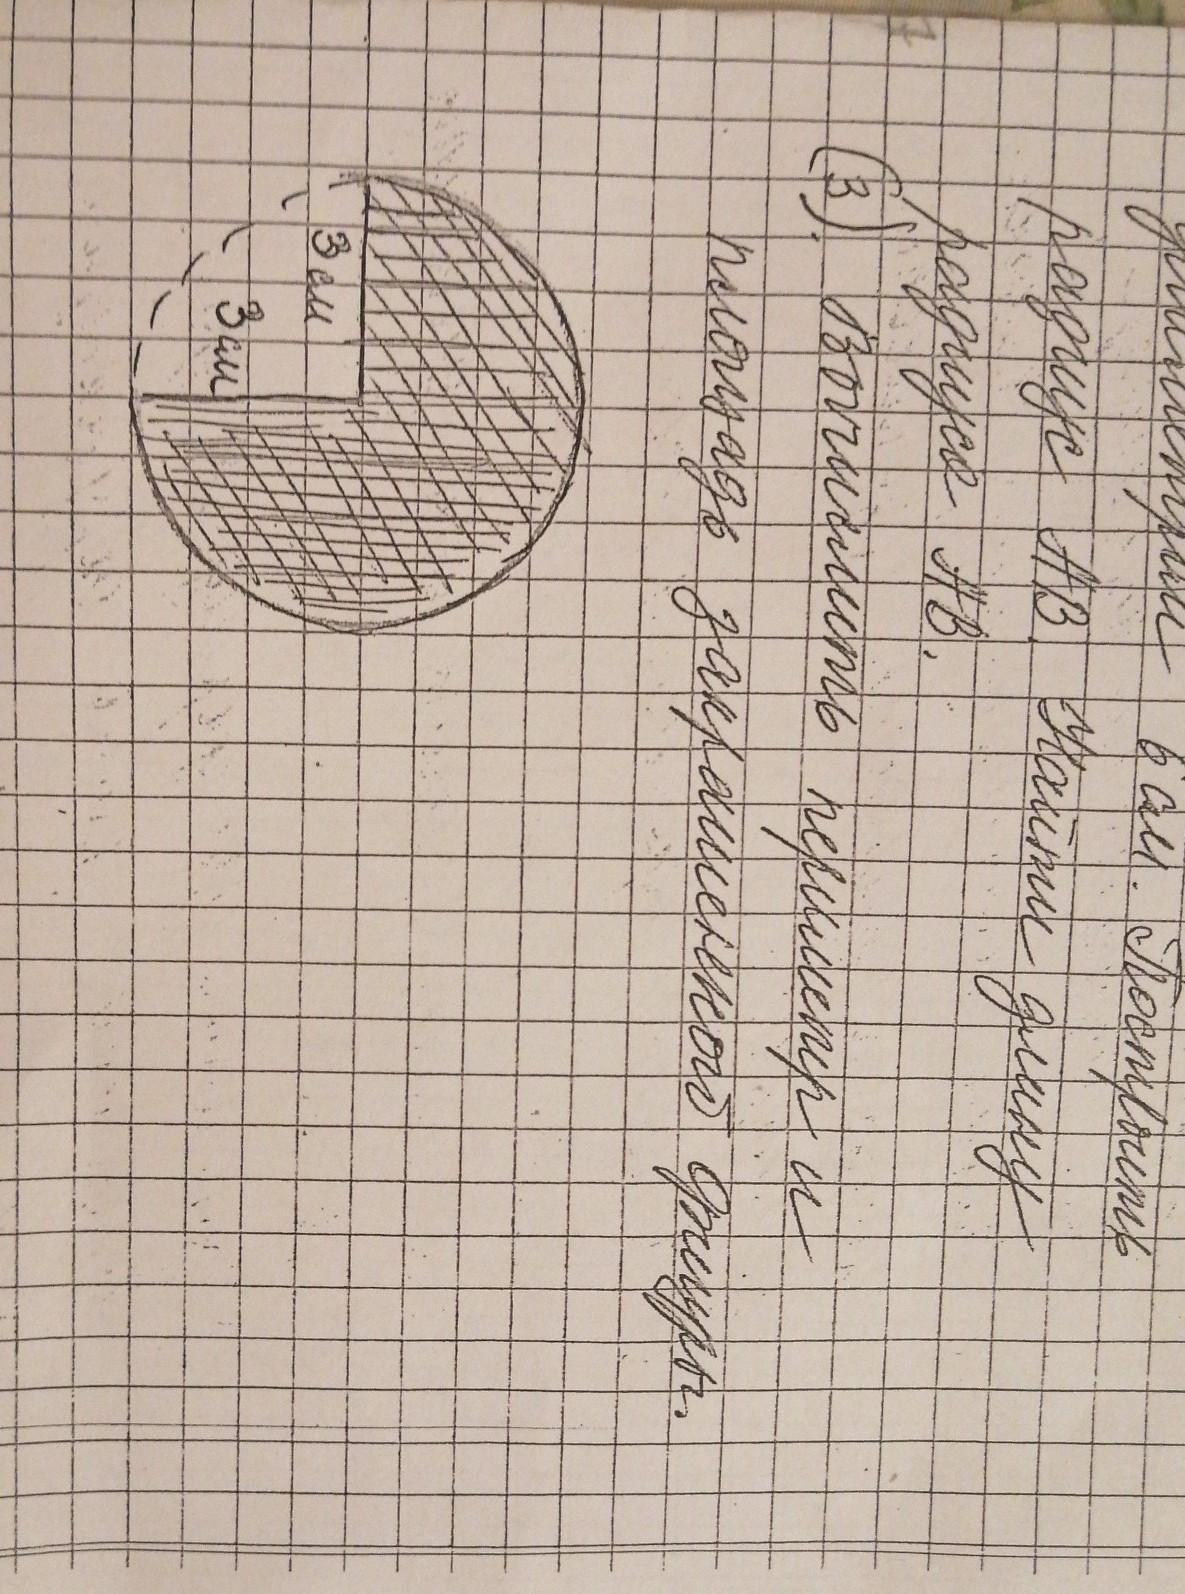 диаметрии 6 см. Построить
радиус АВ. Найти длину
радиуса АВ.
(3). Вычислить периметр и
площадь закрашенной фигуры.
3 см
3 см